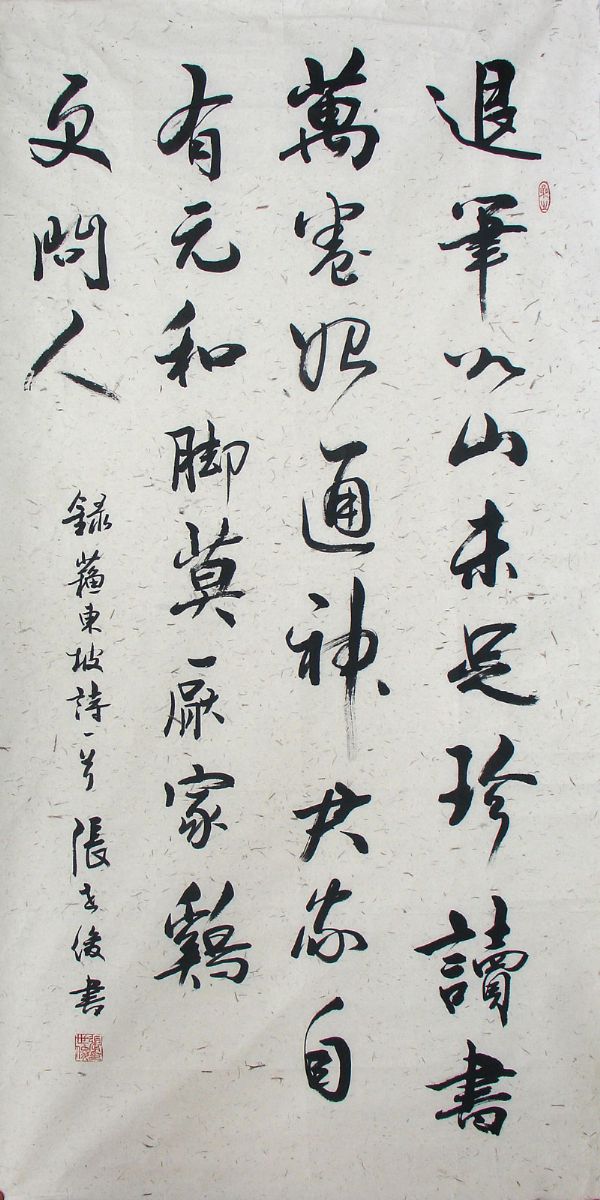 退筆如山未足珍讀書
萬卷始通神君家自
有元和脚莫厭家鷄
更問人
錄蘇東坡詩一首 張世俊書